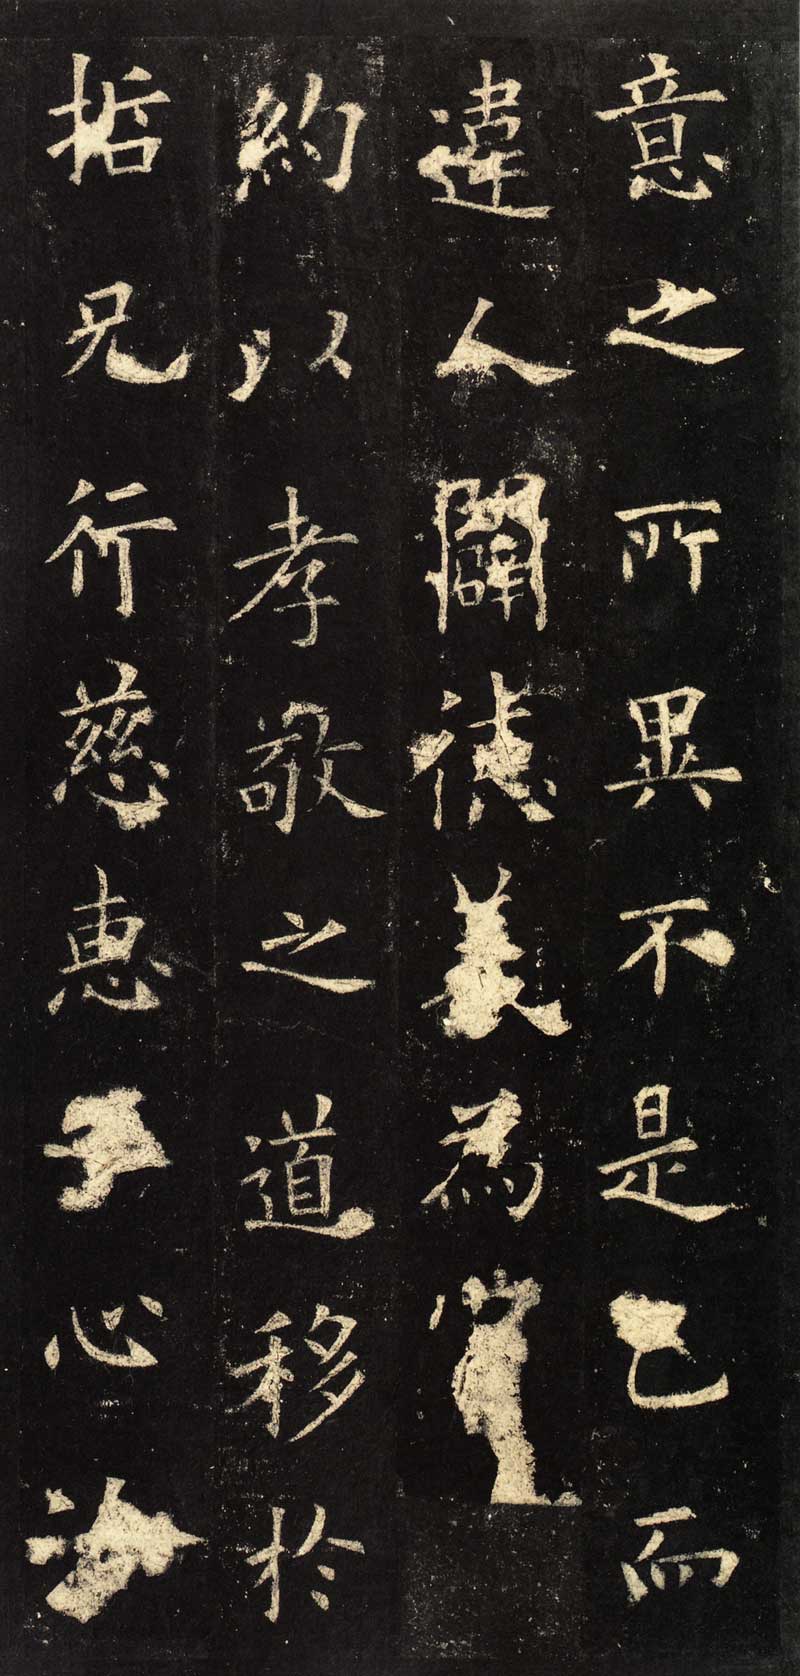 意之所異不是己而
違人闡德義為
約以孝敬之道移於
哲兄行慈惠
心